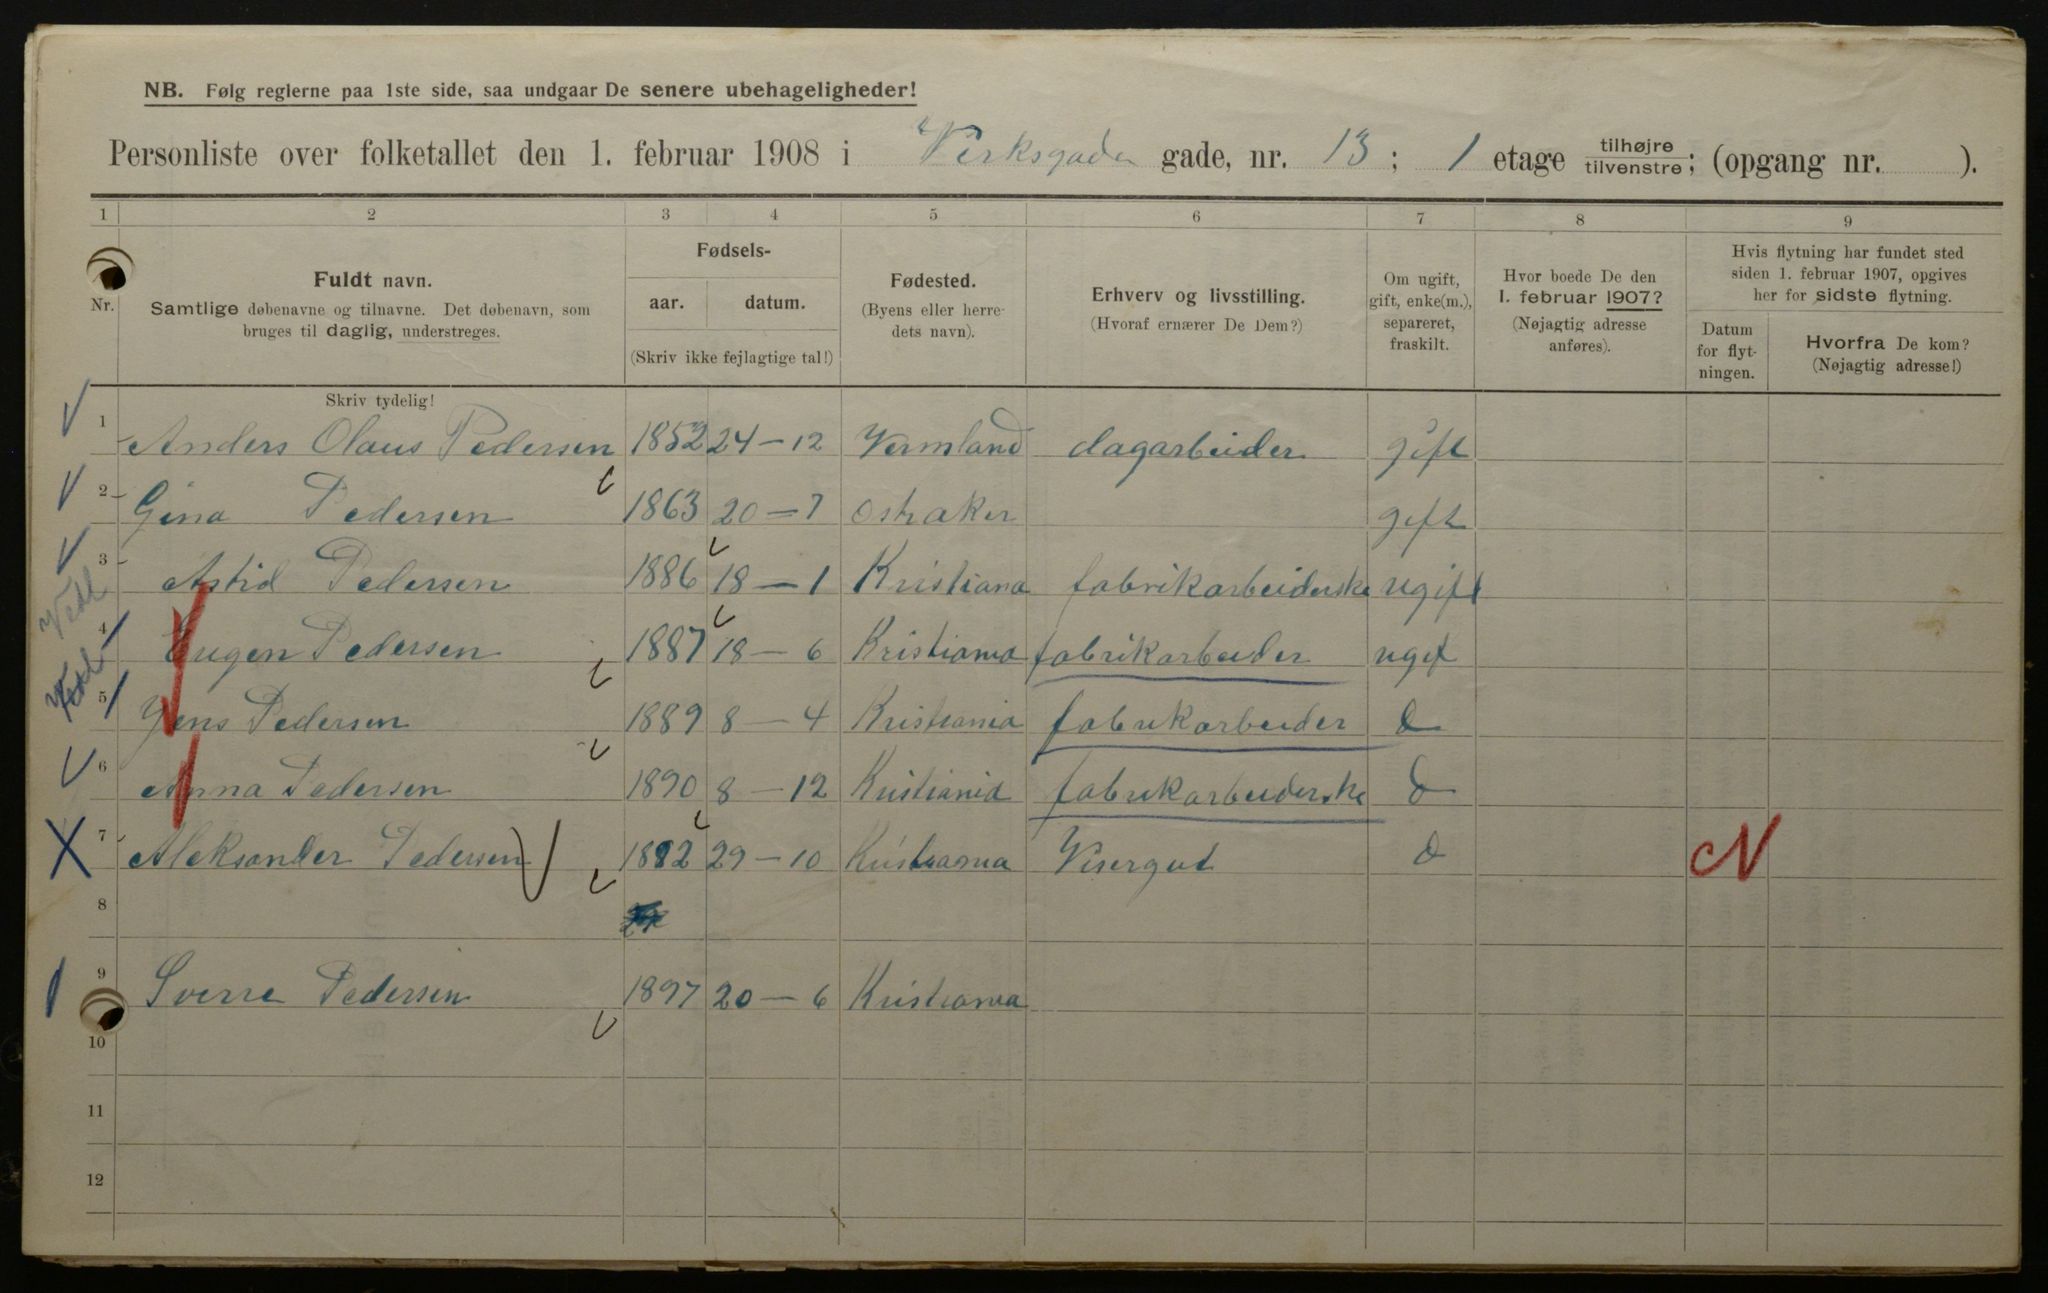 NB. Følg reglerne paa 1ste side, saa undgaar De senere ubehageligheder!
Personliste over folketallet den 1. februar 1908 i Verksgada gade, nr. 13; 1 etage tilhøjre tilvenstre; (opgang nr. ).
1 2 3 4 5 6 7 8 9
Nr.
Fuldt navn.
Samtlige døbenavne og tilnavne. Det døbenavn, som
bruges til daglig, understreges.
Fødsels-
aar. datum.
(Skriv ikke fejlagtige tal!)
Fødested.
(Byens eller herre-
dets navn).
Erhverv og livsstilling.
(Hvoraf ernærer De Dem?)
Om ugift,
gift, enke(m.),
separeret,
fraskilt.
Hvor boede De den
1. februar 1907?
(Nøjagtig adresse
anføres).
Hvis flytning har fundet sted
siden 1. februar 1907, opgives
her for sidste flytning.
Datum
for flyt-
ningen.
Hvorfra De kom?
(Nøjagtig adresse!)
Skriv tydelig!
1 Anders Olaus Pedersen 1852 24-12 Vermland dagarbeider gift
2 Gina Pedersen 1863 20-7 Østraker gift
3 Astid Pedersen 1886 18-1 Kristiana fabrikarbeiderske ugift
4 Eugen Pedersen 1887 18-6 Kristiania fabrikarbeider ugif
5 Jens Pedersen 1889 8-4 Kristiania fabrikarbeider d
6 Anna Pedersen 1890 8-12 Kristiania fabrikarbeiderske d
7 Aleksander Pedersen 1892 29-10 Kristiania Visergut d N
8
9 Sverre Pedersen 1897 20-6 Kristiania
10
11
12